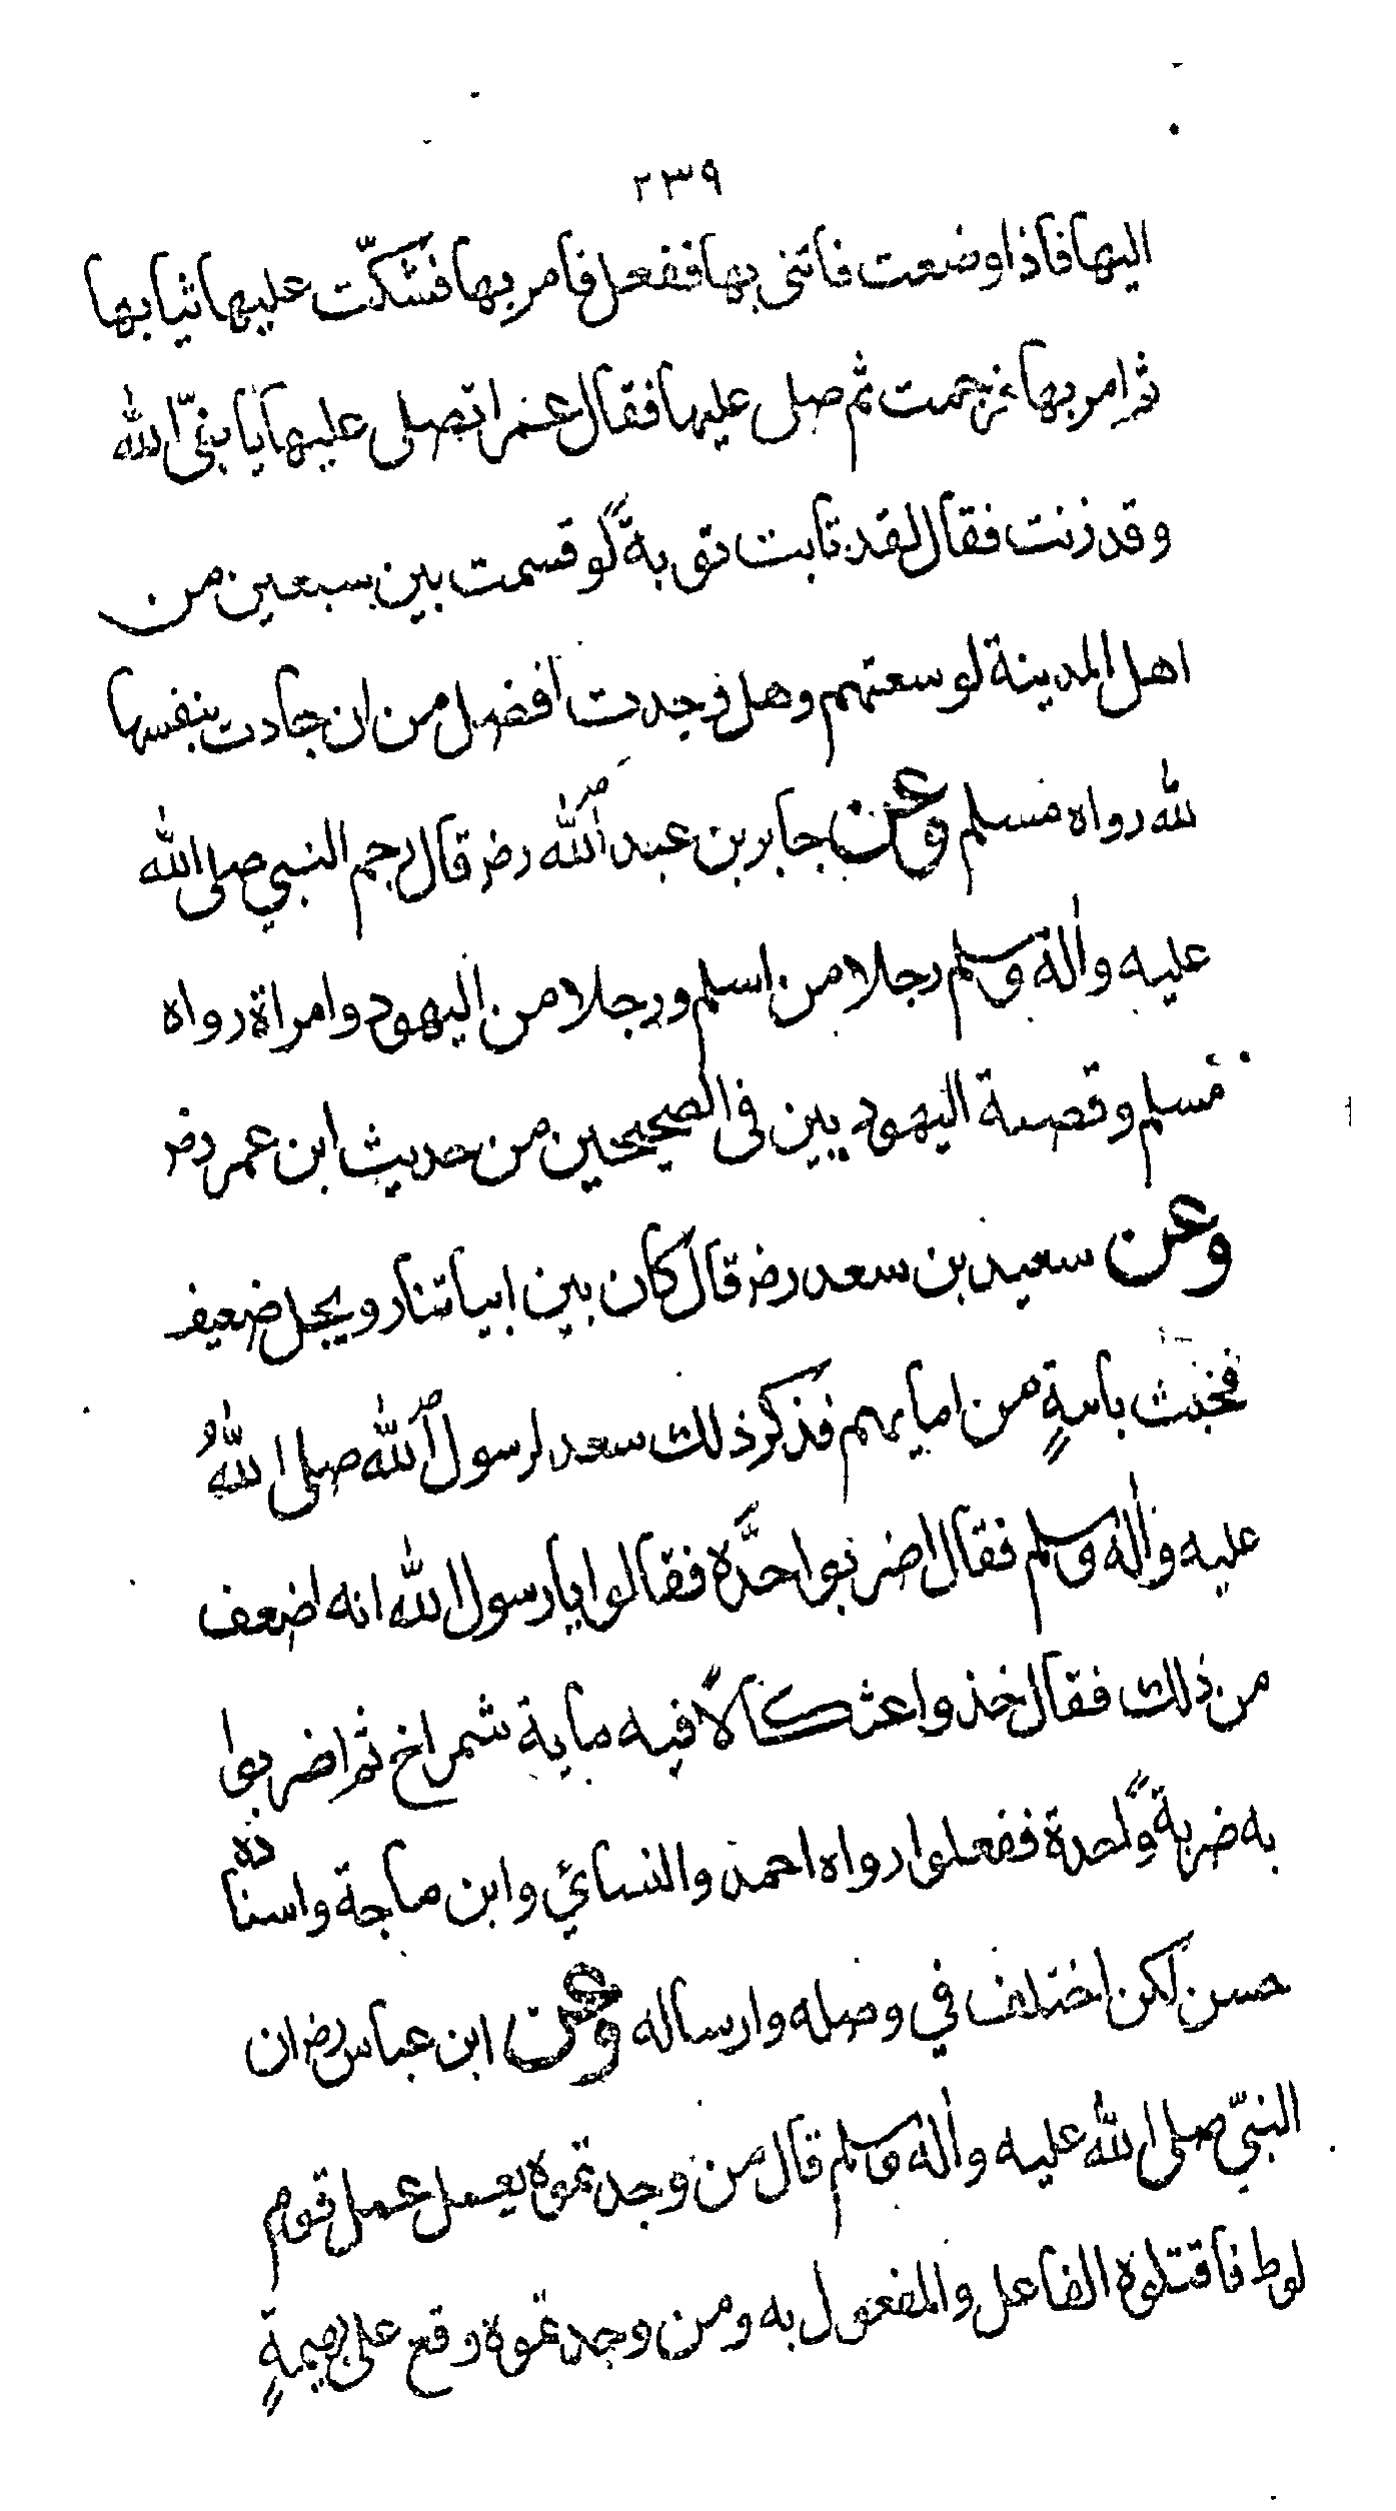 ٢٣٩
اليها فاذا وضعت فاتنى بها ففعل فامر بها فشكّت عليها ثيابها
ثم امر بها فرجمت ثم صلى عليها فقال عمر اتصلى عليها يا نبىّ الله
وقد زنت فقال لقد تابت توبةً لو قسمت بين سبعين من
اهل المدينة لوسعتهم وهل وجدت افضل من ان جادت بنفسها
لله رواه مسلم وعن جابر بن عبد الله رضـ قال رجم النبي صلى الله
عليه واله وسلم رجلا من اسلم ورجلا من اليهود وامراة رواه
مسلم وقصة اليهوديين فى الصحيحين من حديث ابن عمر رضـ
وعن سعيد بن سعد رضـ قال كان بين ابياتنا رويجل ضعيف
فخبث بامةٍ من امايهم فذكر ذلك سعد لرسول الله صلى اللهُ
عليه واله وسلم فقال اضربوا حدَّه فقالوا يا رسول الله انه اضعف
من ذلك فقال خذوا عثكالًا فيه ماية شمراخ ثم اضربوا
به ضربةً واحدة ففعلوا رواه احمد والنسائي وابن ماجة واسناده
حسن لكن اختلف في وصله وارساله وعن ابن عباس رضـ ان
النبيّ صلى الله عليه واله وسلم قال من وجدتموه يعمل عمل قوم
لوط فاقتلوه الفاعل والمفعول به ومن وجدتموه وقع على بهيمةٍ